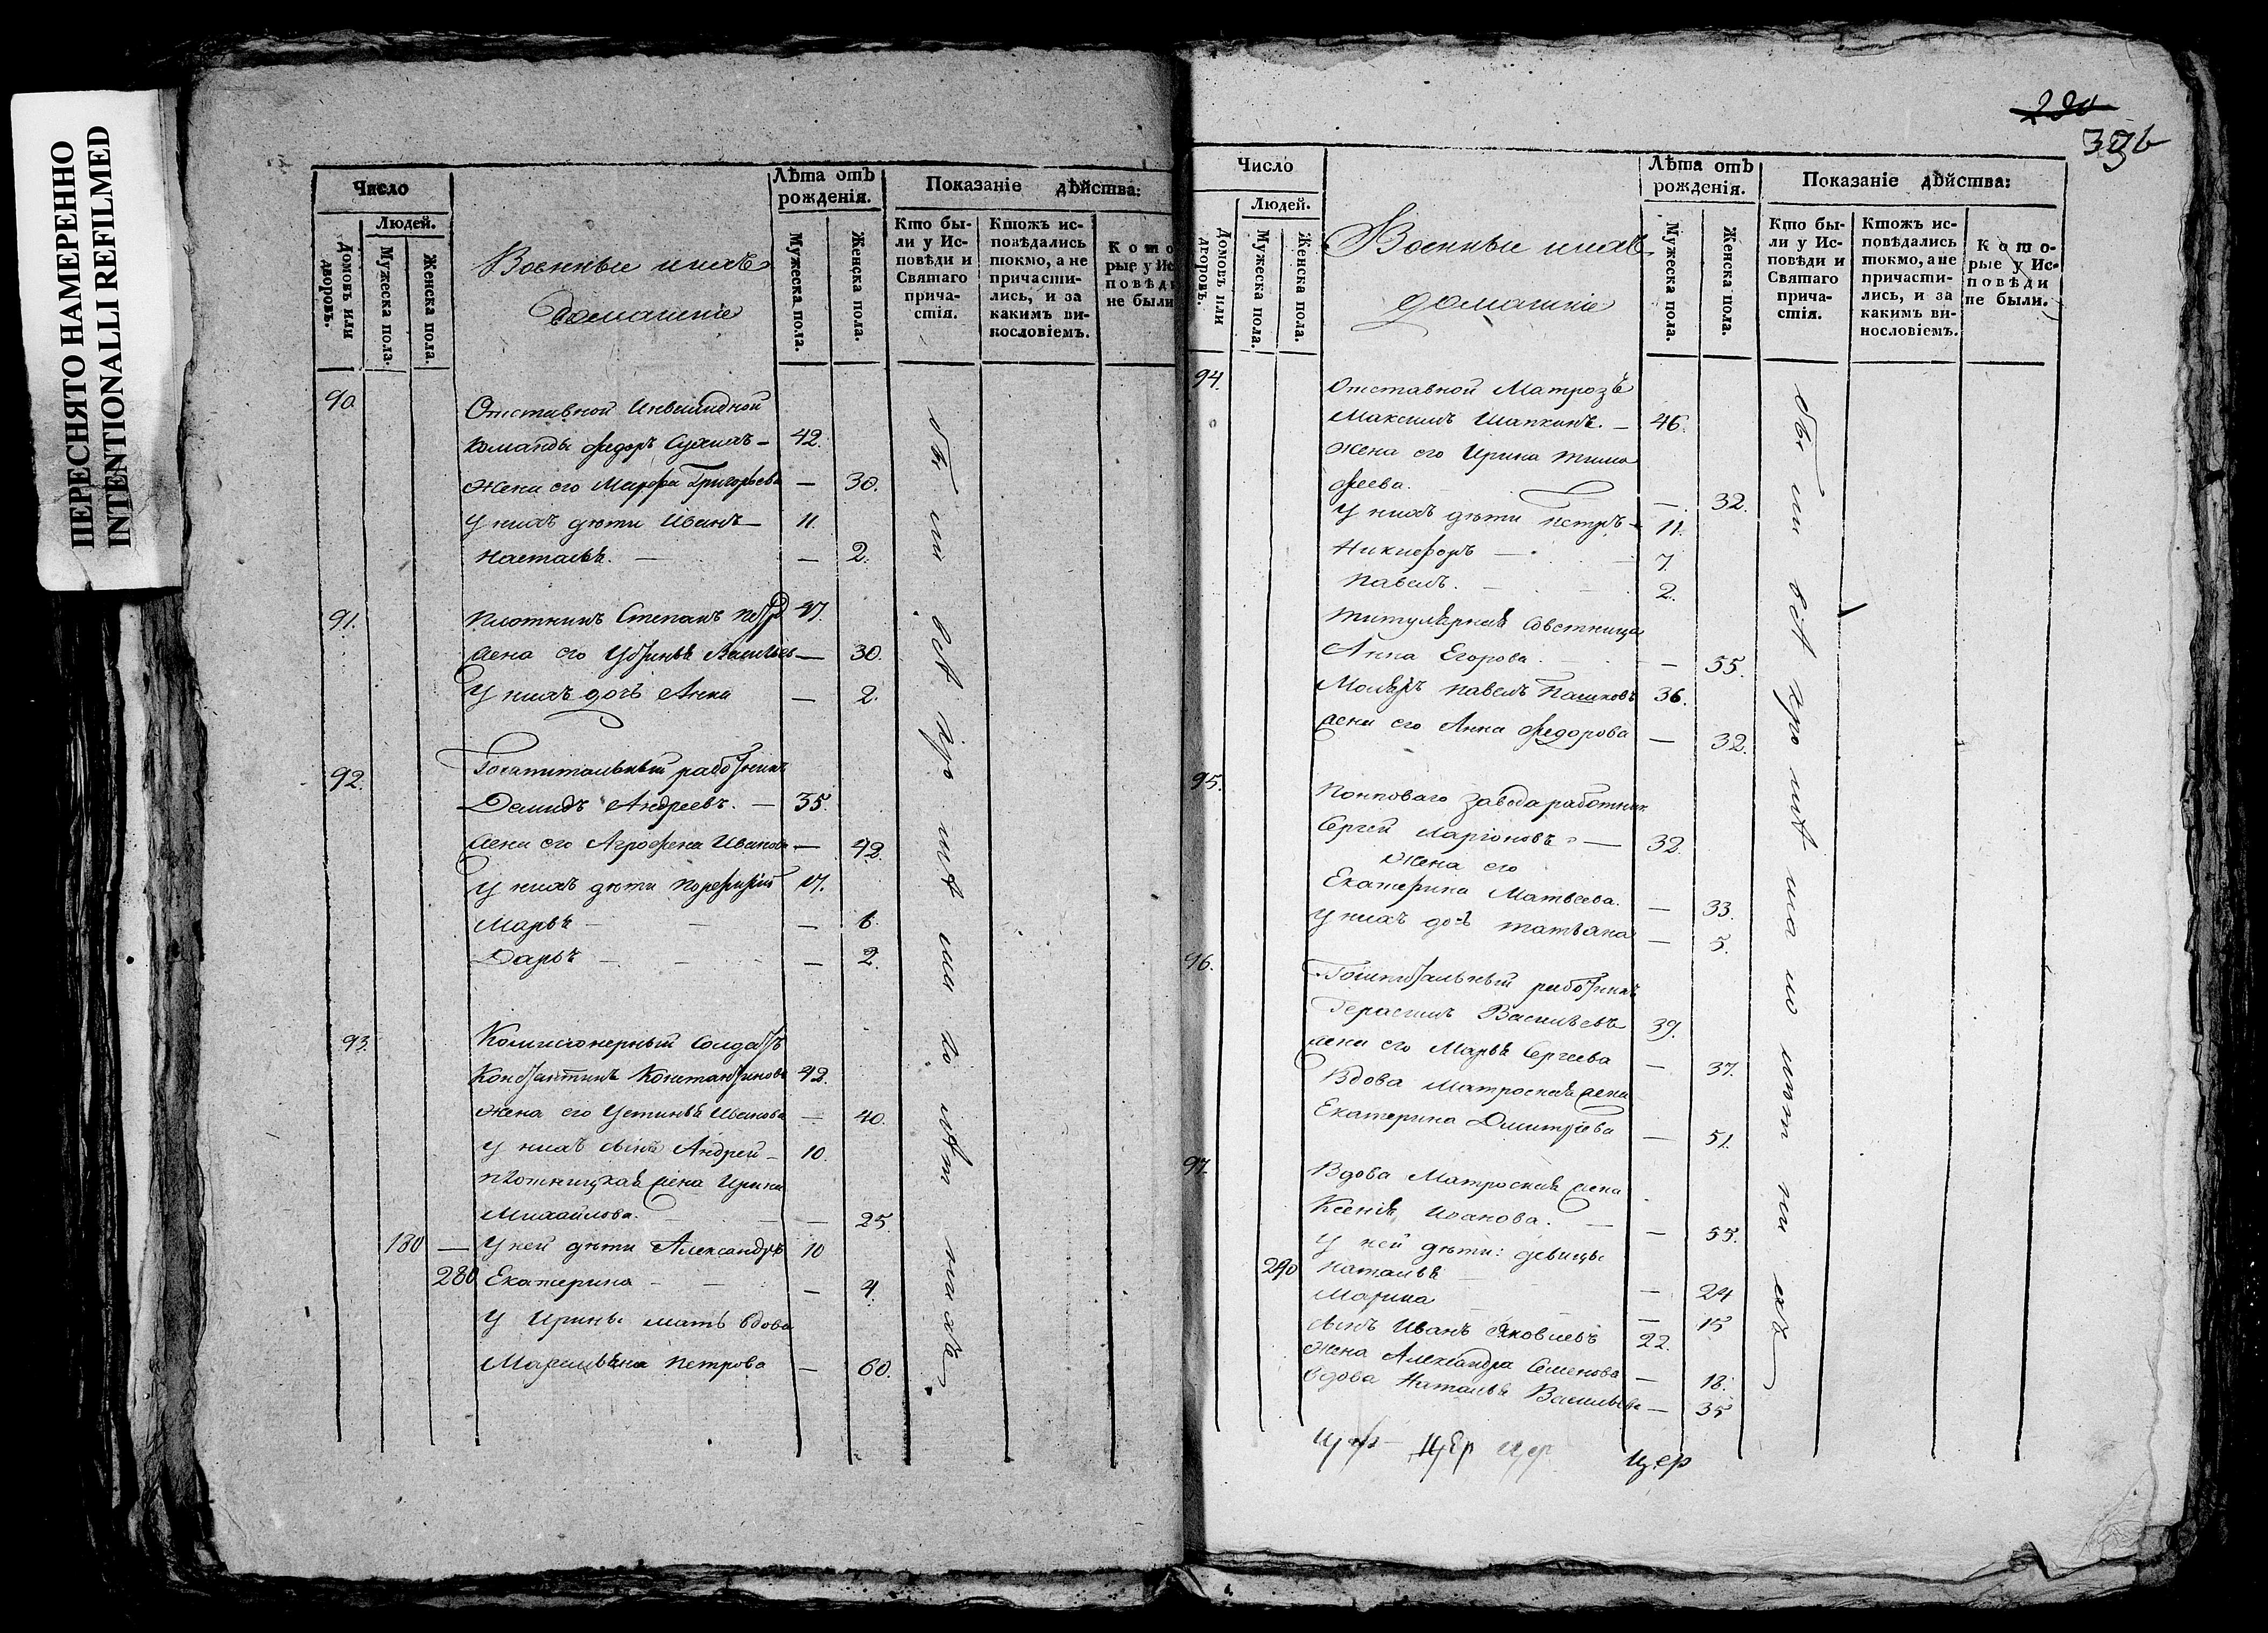 ПЕРЕСНЯТО НАМЕРЕННО
INTENTIONALLI REFILMED
Число
Людей.
Домовъ или дворовъ.
Мужеска пола.
Женска пола.
Военные и ихъ
домашніе
Лѣта отъ рожденія.
Мужеска пола.
Женска пола.
Показаніе дѣйства:
Кто бы-
ли у Ис-
повѣди и
Святаго
прича-
стія.
Ктожъ ис-
повѣдались
токмо, а не
причасти-
лись, и за
какимъ ви-
нословіемъ.
Кото
рые у Ис
повѣди
не были
90 Отставной Инвалидной
команды Федоръ — 42.
Жена его Марфа Григорьева — 30.
У нихъ дѣти Иванъ — 11.
Наталья. — — 2.
91. Плотникъ Степанъ Петр 47.
Жена его Устинья Васильев — 30.
У нихъ дочь Анна — 2.
92. Гошпитальный работникъ
Демидъ Андреевъ. — 35.
Жена его Агрофена Иванова — 42.
У нихъ дѣти Порфирій 17.
Марья — — 6.
Дарья — — 2.
93. Комисіонерный Солдатъ
Константинъ Константиновъ 42.
Жена его Устинья Иванова — 40.
У нихъ сынъ Андрей — 10.
Плотницкая жена Ирина
Михайлова. — 25
180 — У ней дѣти Александръ 10
280 Екатерина — — 4.
У Ирины мать вдова
Петрова — 60.
290
Число
Людей.
Домовъ или дворовъ.
Мужеска пола.
Женска пола.
Военные и ихъ
домашніе
Лѣта отъ рожденія.
Мужеска пола.
Женска пола.
Показаніе дѣйства:
Кто бы-
ли у Ис-
повѣди и
Святаго
прича-
стія.
Ктожъ ис-
повѣдались
токмо, а не
причасти-
лись, и за
какимъ ви-
нословіемъ.
Кото-
рые у Ис-
повѣди
не были.
94. Отставной Матрозъ
Максимъ Шапкинъ. — 46.
Жена его Ирина Тимо
феева. — 32.
У нихъ дѣти Петръ — 11.
Никифоръ — 7.
Павелъ. — 2.
Титулярная Совѣтница
Анна Егорова. — 55.
Павелъ Пашковъ 36.
жена его Анна Федорова — 32.
95. завода работник
Сергей Ларіоновъ — 32.
Жена его
Екатерина Матвеева. — 33.
У нихъ дочь Татьяна — 5.
96. Гошпитальный работникъ
Герасимъ Васильевъ 39.
жена его Марья Сергеева — 37.
Вдова Матроская жена
Екатерина Дмитріева — 51.
97. Вдова Матроская жена
Ксенія Иванова. — 55.
У ней дѣти: девицы
290 Наталья — 24
Марина — 15
Сынъ Иванъ Яковлевъ 22.
Жена Александра Семенова — 18.
Вдова Наталья Васильева — 35
цер цер